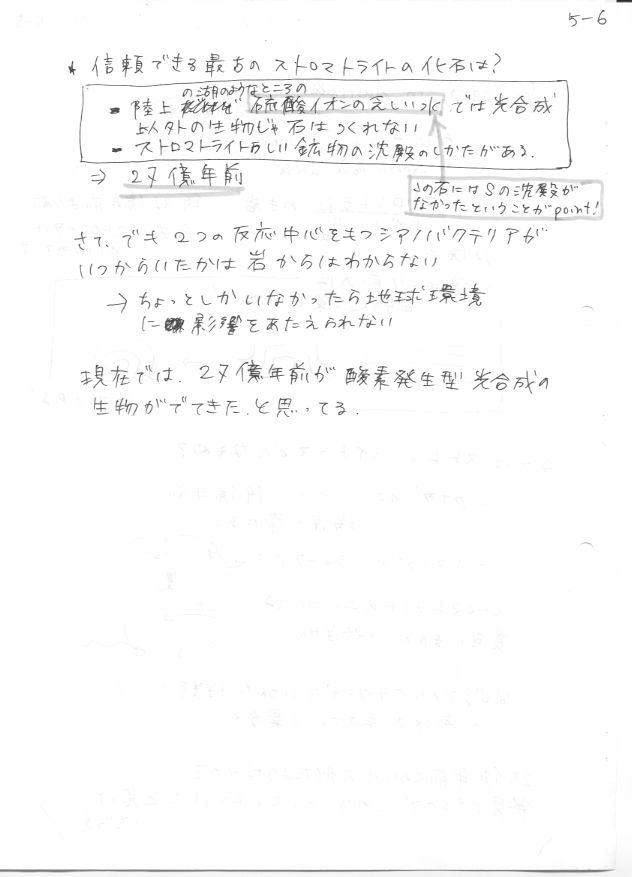 5-6
* 信頼できる最古のストロマトライトの化石は?
の湖のようなところの
- 陸上 硫酸イオンの乏しい水では光合成
以外の生物じゃ石はつくれない
- ストロマトライトらしい鉱物の沈殿のしかたがある.
⇒ 27億年前
この石にはSの沈殿が
なかったということがpoint!
さて、でも2つの反応中心をもつシアノバクテリアが
いつからいたかは岩からはわからない
→ ちょっとしかいなかったら地球環境
に影響をあたえられない
現在では、27億年前が酸素発生型光合成の
生物がでてきた、と思ってる.